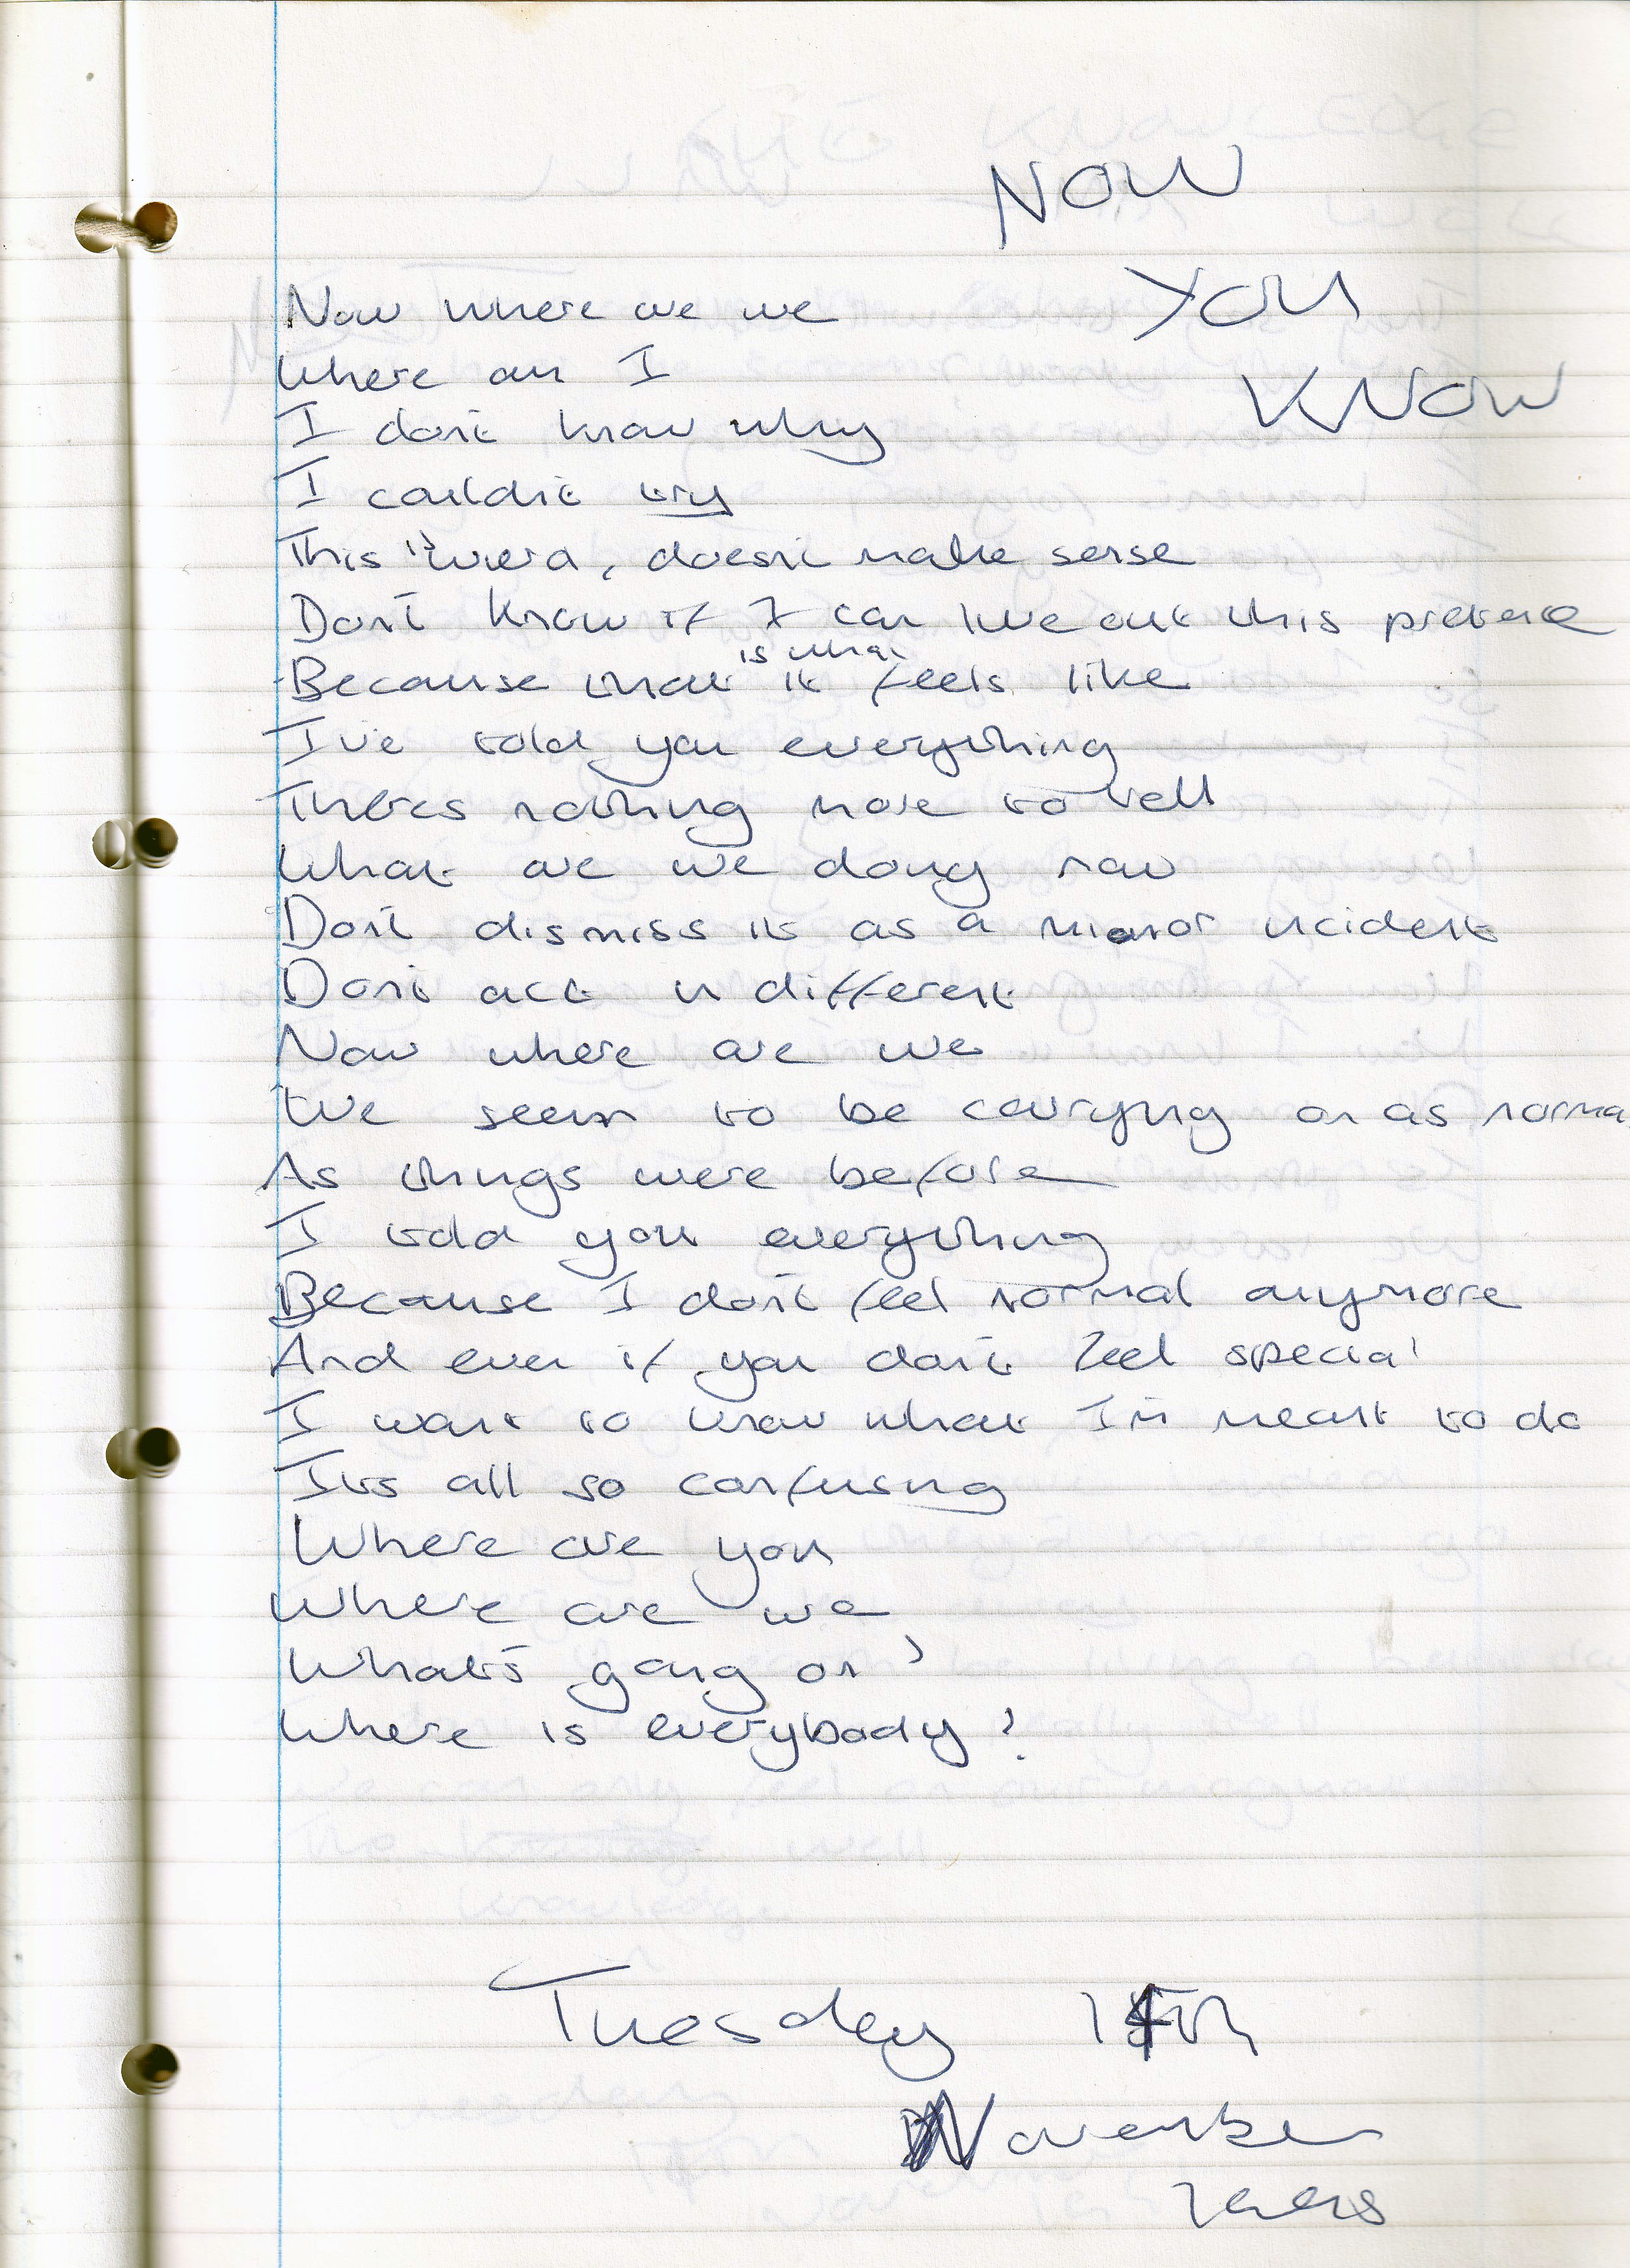 NOW
YOU
KNOW
Now where are we
Where am I
I don't know why
I couldn't try
This is weird, doesn't make sense
Don't know if I can live out this pretence
Because that is what it feels like
I've told you everything
Theres nothing more to tell
What are we doing now
Don't dismiss it as a minor incident
Don't act indifferent
Now where are we
We seem to be carrying on as normal
As things were before
I told you everything
Because I don't feel normal anymore
And even if you don't feel special
I want to know what I'm meant to do
Its all so confusing
Where are you
Where are we
What's going on?
Where is everybody?
Tuesday
November